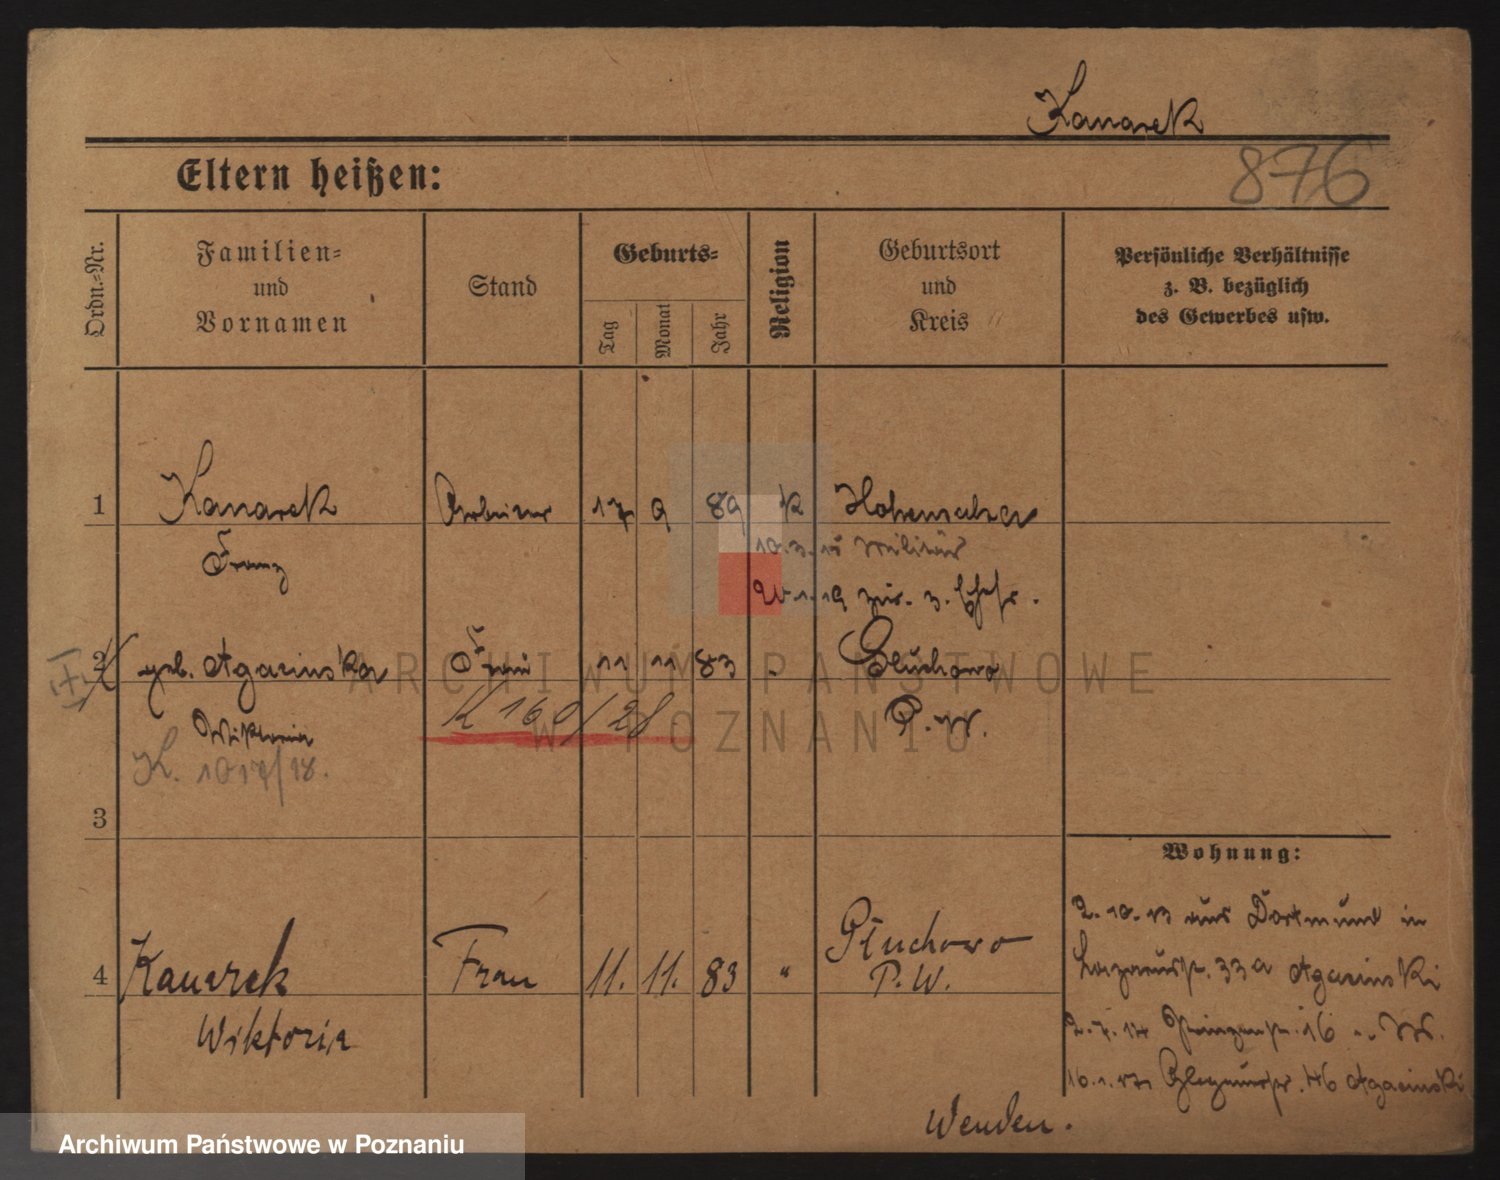 Kanarek
876
Eltern heißen:
Ordn.-Nr.
Familien-
und
Vornamen
Stand
Geburts-
Tag
Monat
Jahr
Religion
Geburtsort
und
Kreis
Persönliche Verhältnisse
z. B. bezüglich
des Gewerbes usw.
1 Kanarek Arbeiter 17 9 89 K Hohensalza
Franz 10.3.15 Militär
1.19 zur. z. Ehefr.
2 geb. Agacinska Frau 11 11 83 Gluchowo
Wiktoria P. W.
K 160/28
K. 1017/18.
ARCHIWUM PAŃSTWOWE
W POZNANIU
3
Wohnung:
2.10.13 aus Dortmund in
Lazarusstr. 33a Agacinski
4 Kanarek Frau 11. 11. 83 " Głuchowo
P.W.
Wiktoria
2.7.14 Prinzenstr. 16
16.1.17 46 Agacinski
Wenden.
Archiwum Państwowe w Poznaniu